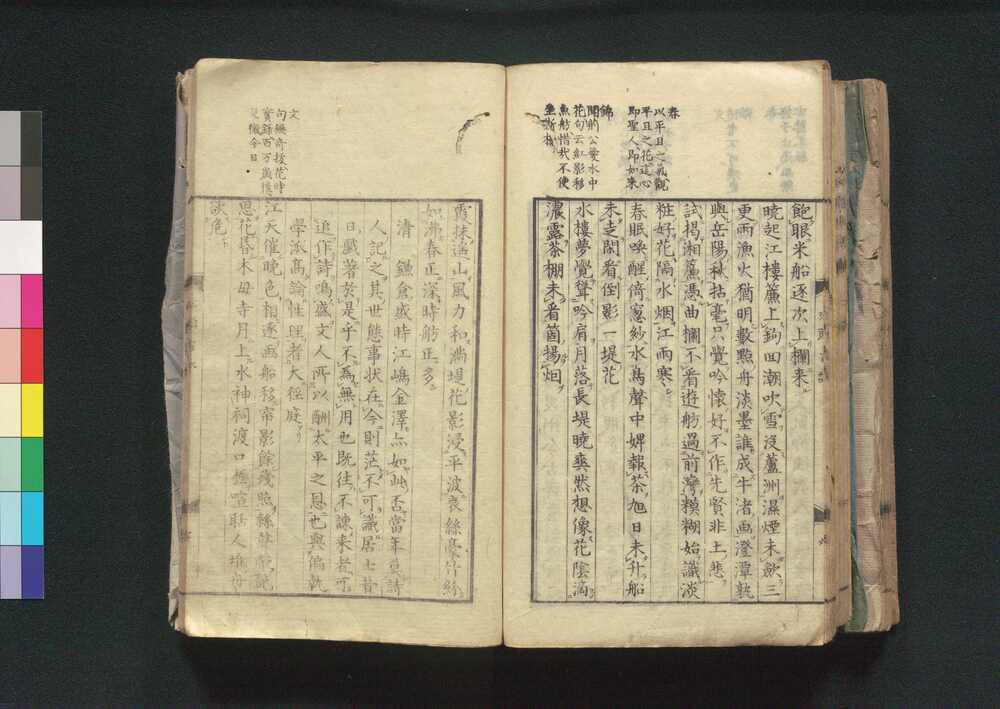 春
以平旦之氣觀
平旦之花其心
即聖人即如來
錦
閑的公愛水中
花句云紅影移
魚舫惜我不使
飽眼米船逐次上欄来
曉起江樓簾上鉤回潮吹雪沒蘆洲濕煙未歛三
更雨漁火猶明數點舟淡墨誰成牛渚画澄潭孰
與岳陽秋拈毫只覺吟懷好不作先賢非土悲
試揭湘簾憑曲欄不看遊舫過前灣模糊始識淡
粧好花隔水烟江雨寒
春眠喚醒倚窓紗水鳥聲中婢報茶旭日未升船
未去閑看倒影一堤花
水樓夢覺聳吟肩月落長堤曉爽然想像花陰滴
濃露茶棚未看箇揚烟
文
霞抹遠山風力和満堤花影浸平波哀絲豪竹紛
如沸春正深時舫正多
清 鎌倉盛時江嶋金澤亦如此否當年莫詩
人記之其世態事状在今則茫不可識居士昔
日戯著於是乎不為無用也既往不諫来者可
追作詩鳴盛文人所以酬太平之恩也與偏執
學派高論性理者大徑庭
江天催晩色相逐画船移帘影餘殘照
思花暮木母寺月上水神祠渡口
談危